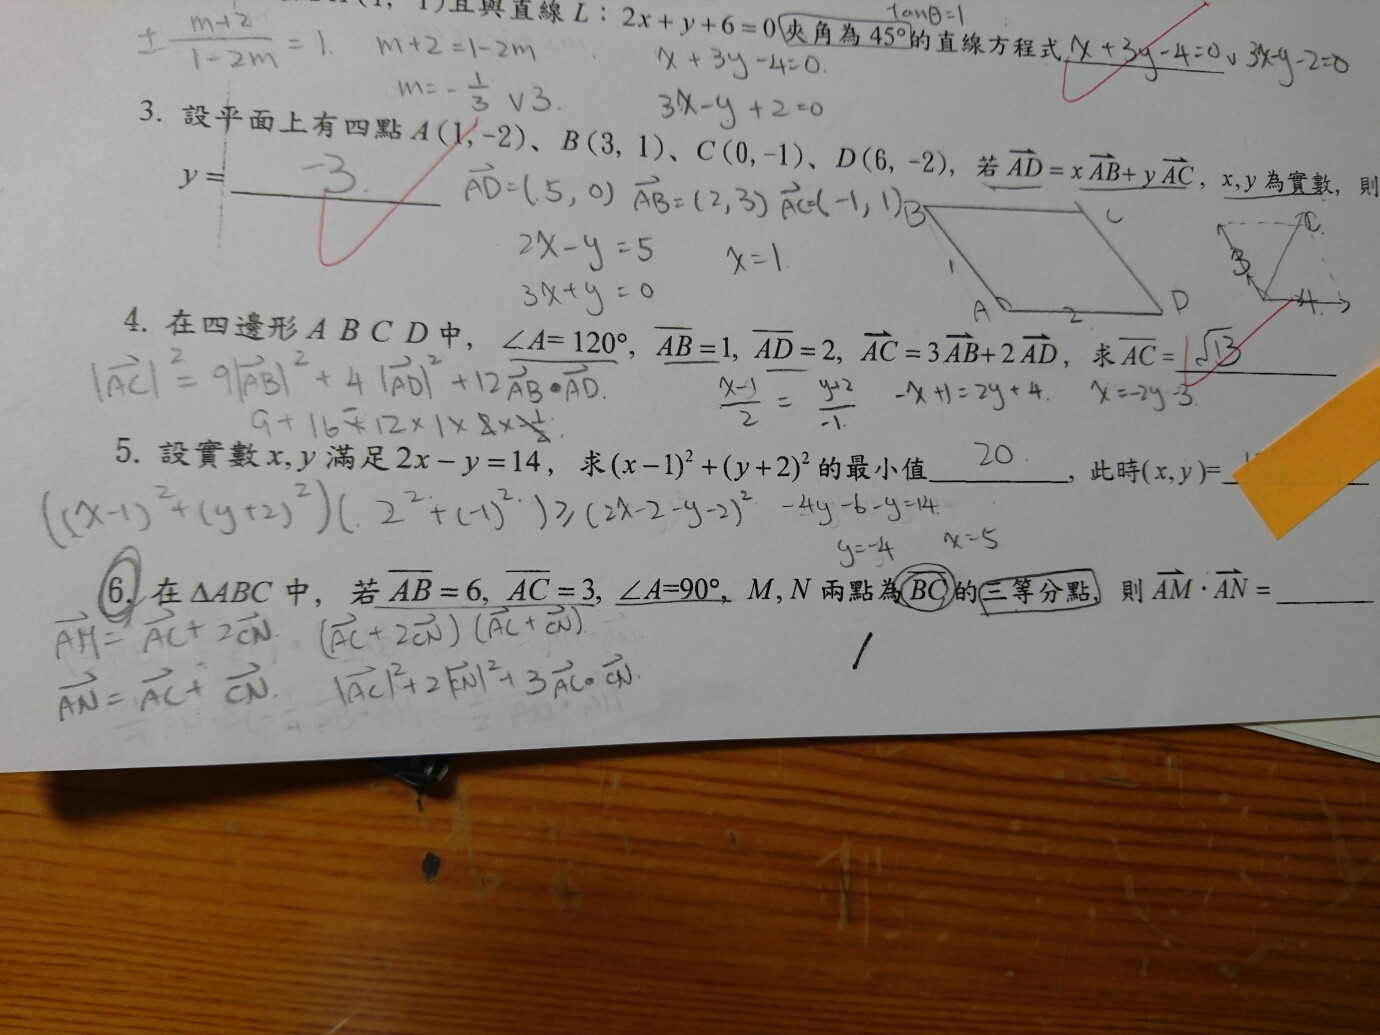 且與直線 L：2x + y + 6 = 0 夾角為 45° 的直線方程式 x + 3y - 4 = 0 v 3x - y - 2 = 0
tanθ = 1
± (m+2)/(1-2m) = 1. m+2 = 1-2m x + 3y - 4 = 0.
m = -1/3 v 3. 3x - y + 2 = 0
3. 設平面上有四點 A(1, -2)、B(3, 1)、C(0, -1)、D(6, -2)，若 AD = x AB + y AC，x, y 為實數，則
y = -3. AD = (5, 0) AB = (2, 3) AC = (-1, 1)
2x - y = 5 x = 1
3x + y = 0
B C A D 1 2
B C
4. 在四邊形 A B C D 中，∠A = 120°, AB = 1, AD = 2, AC = 3AB + 2AD，求 AC = √13
|AC|² = 9|AB|² + 4|AD|² + 12 AB·AD.
(x-1)/2 = (y+2)/-1 -x+1 = 2y+4. x = -2y-3
5. 設實數 x, y 滿足 2x - y = 14，求 (x-1)² + (y+2)² 的最小值 20，此時 (x, y) =
((x-1)² + (y+2)²)(2² + (-1)²) ≥ (2x-2-y-2)² -4y-6-y = 14
y = -4 x = 5
6. 在 ΔABC 中，若 AB = 6, AC = 3, ∠A = 90°, M, N 兩點為 BC 的三等分點，則 AM · AN =
AM = AC + 2CN. (AC + 2CN)(AC + CN).
AN = AC + CN. |AC|² + 2|CN|² + 3AC·CN.